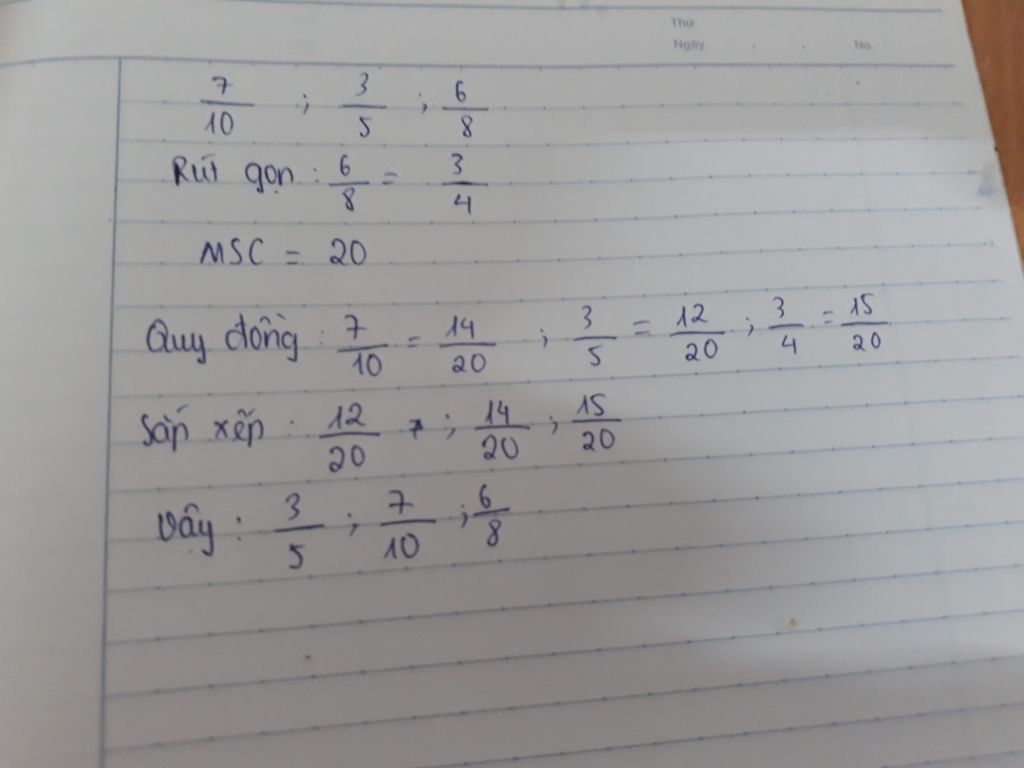 Thứ
Ngày . . No.
7/10 ; 3/5 ; 6/8
Rút gọn : 6/8 = 3/4
MSC = 20
Quy đồng : 7/10 = 14/20 ; 3/5 = 12/20 ; 3/4 = 15/20
Sắp xếp : 12/20 ; 14/20 ; 15/20
Vậy : 3/5 ; 7/10 ; 6/8